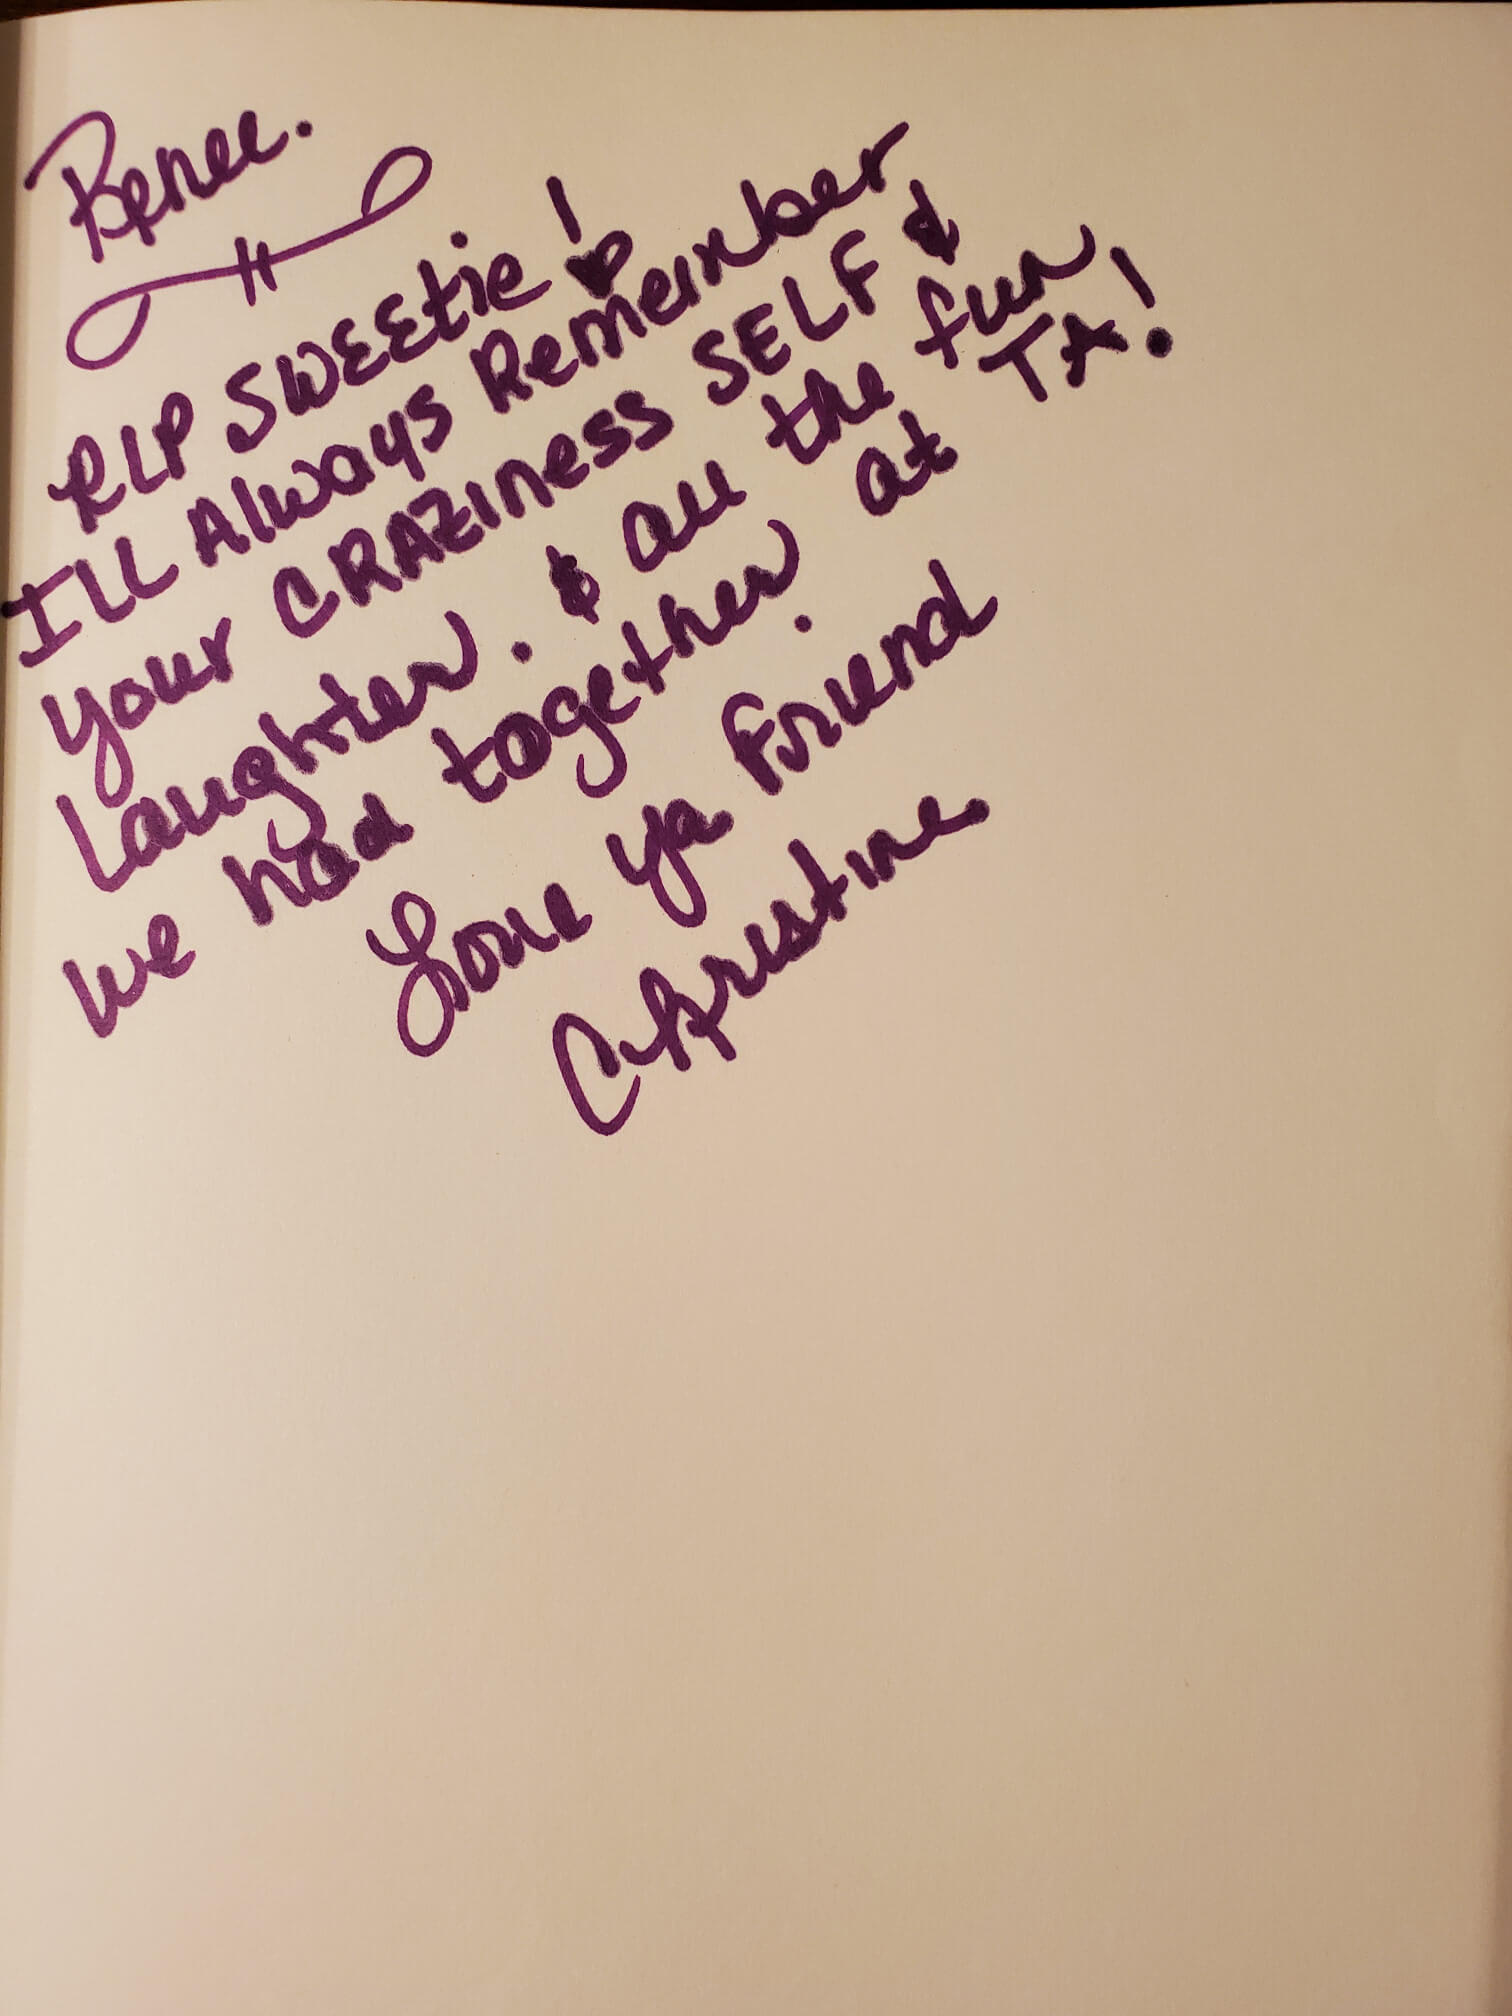 Renee.
RIP SWEEtie! ♥
ILL Always Remember
your CRAZIness SELF &
Laughter. & all the fun
we had together. at TA!
Love ya Friend
Christine